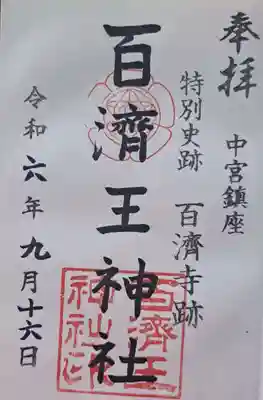 奉拝
中宮鎮座
特別史跡 百済寺跡
百濟王神社
令和六年九月十六日
百済王
神社印